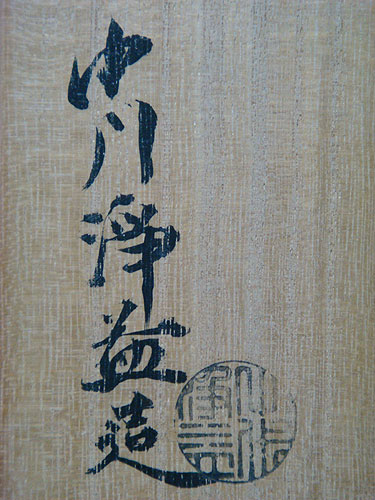 中川淨益造